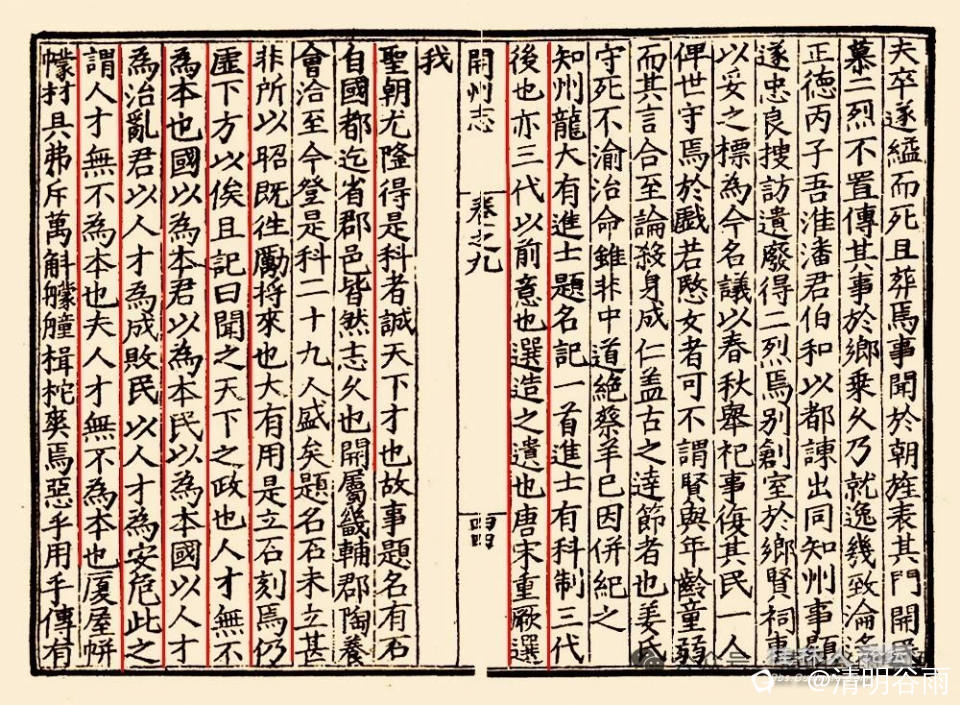 夫卒遂縊而死且葬焉事聞於朝旌表其門開
慕二烈不置傳其事於鄉乘久乃就逸幾致淪
正德丙子吾淮潘君伯和以都諫出同知州事
遂忠良搜訪遺廢得二烈焉别創室於鄉賢祠事
以妥之標為今名議以春秋舉祀事復其民一人
俾世守焉於戲若愍女者可不謂賢與年齡童弱
而其言合至論殺身成仁盖古之達節者也姜氏
守死不渝治命雖非中道絕蔡羊已因併紀之
知州龍大有進士題名記一首進士有科制三代
後也亦三代以前意也選造之遺也唐宋重厥選
開州志 卷之九
我
聖朝尤隆得是科者誠天下才也故事題名有石
自國都迄省郡邑皆然志久也開屬畿輔郡陶養
會洽至今登是科二十九人盛矣題名石未立甚
非所以昭既徃勵將來也大有用是立石刻焉仍
匡下方以俟且記曰聞之天下之政也人才無不
為本也國以為本君以為本民以為本國以人才
為治亂君以人才為成敗民以人才為安危此之
謂人才無不為本也夫人才無不為本也厦屋帡
幪材具弗斥萬斛艨艟楫柁奭焉惡乎用乎傳有
@清明谷雨